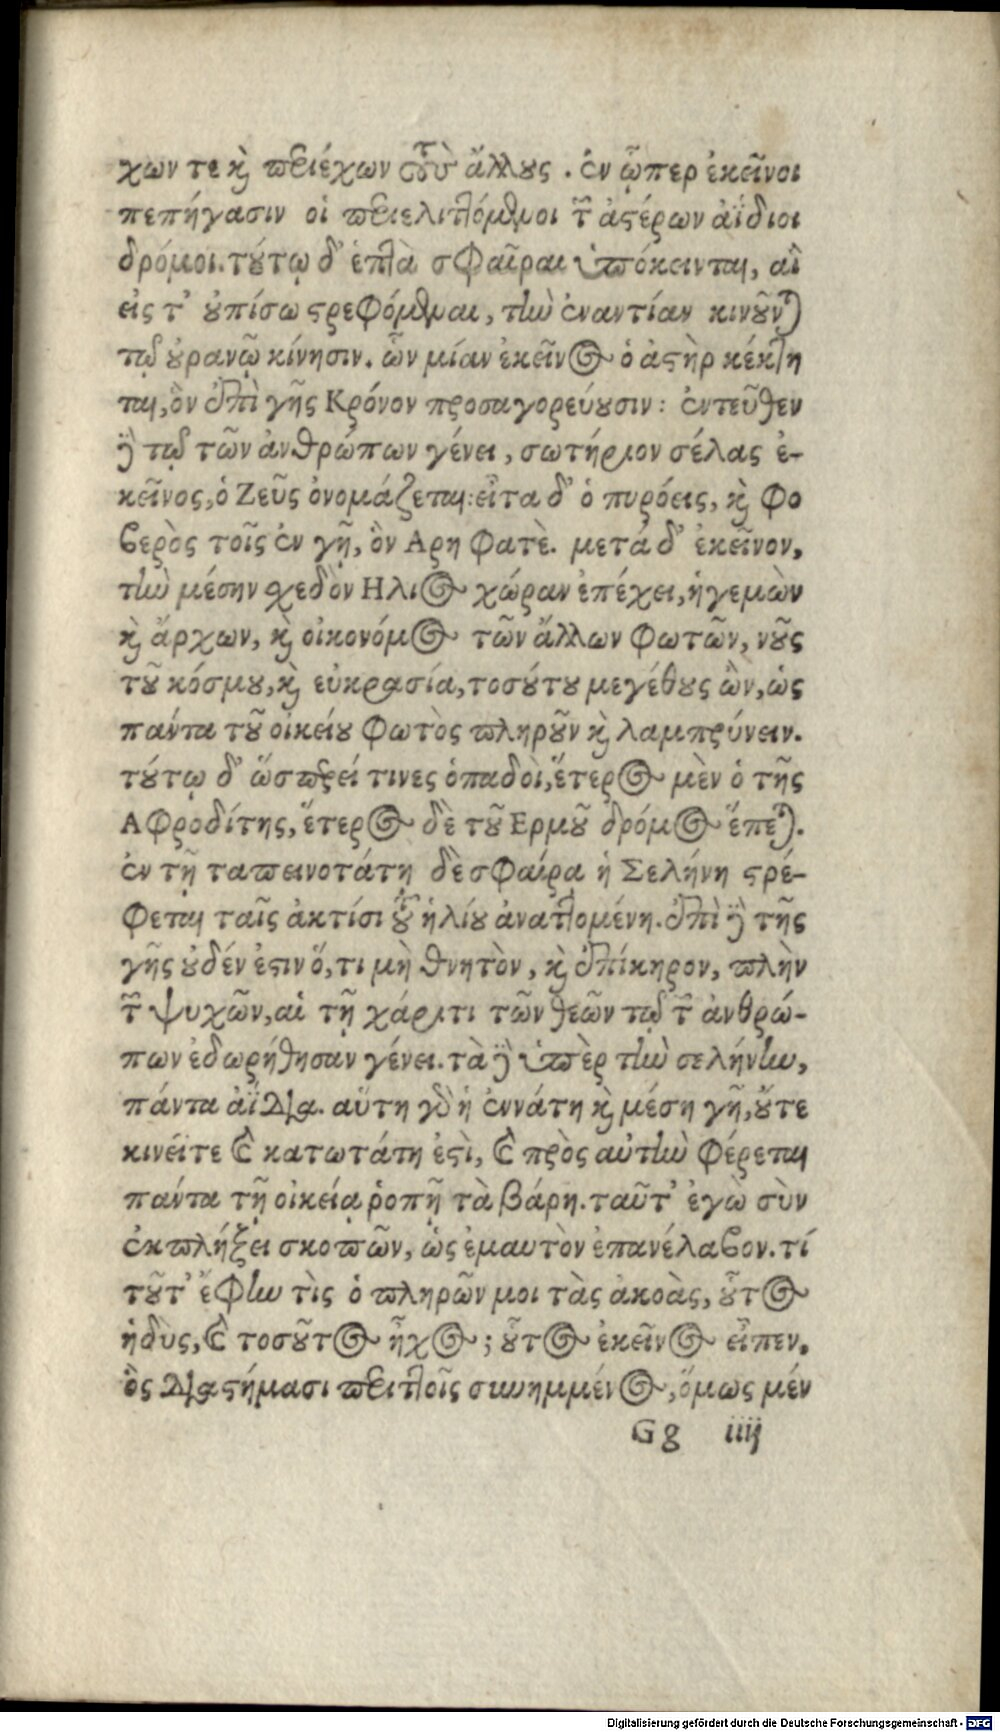 χων τε κὶ περιέχων τοὺς ἄλλους . ἐν ᾧπερ ἐκεῖνοι
πεπήγασιν οἱ περιελιττόμενοι τῶν ἀστέρων ἀΐδιοι
δρόμοι. τούτῳ δ' ἑπτὰ σφαῖραι ὑπόκεινται, αἳ
εἰς τ' οὐπίσω στρεφόμεναι, τὴν ἐναντίαν κινοῦνται
τῷ οὐρανῷ κίνησιν. ὧν μίαν ἐκεῖνος ὁ ἀστὴρ κέκτη
ται, ὃν ἐπὶ γῆς Κρόνον προσαγορεύουσιν: ἐντεῦθεν
δὲ τῷ τῶν ἀνθρώπων γένει, σωτήριον σέλας ἐ-
κεῖνος, ὁ Ζεῦς ὀνομάζεται: εἶτα δ' ὁ πυρόεις, καὶ φο
βερὸς τοῖς ἐν γῇ, ὃν Αρη φατὲ. μετὰ δ' ἐκεῖνον,
τὴν μέσην σχεδὸν Ηλιος χώραν ἐπέχει, ἡγεμὼν
καὶ ἄρχων, καὶ οἰκονόμος τῶν ἄλλων φωτῶν, νοῦς
τοῦ κόσμου, καὶ εὐκρασία, τοσούτου μεγέθους ὢν, ὡς
πάντα τοῦ οἰκείου φωτὸς πληροῦν καὶ λαμπρύνειν.
τούτῳ δ' ὥσπερεί τινες ὀπαδοὶ, ἕτερος μὲν ὁ τῆς
Αφροδίτης, ἕτερος δὲ τοῦ Ερμοῦ δρόμος ἕπεται.
ἐν τῇ ταπεινοτάτῃ δὲ σφαίρᾳ ἡ Σελήνη στρέ-
φεται ταῖς ἀκτίσι τοῦ ἡλίου ἀναπτομένη. ἐπὶ δὲ τῆς
γῆς οὐδέν ἐστιν ὅ,τι μὴ θνητὸν, καὶ ἐπίκηρον, πλὴν
τῶν ψυχῶν, αἱ τῇ χάριτι τῶν θεῶν τῷ τῶν ἀνθρώ-
πων ἐδωρήθησαν γένει. τὰ δὲ ὑπὲρ τὴν σελήνην,
πάντα ἀΐδια. αὕτη γὰρ ἡ ἐννάτη καὶ μέση γῆ, οὔτε
κινεῖτε καὶ κατωτάτη ἐστὶ, καὶ πρὸς αὐτὴν φέρεται
πάντα τῇ οἰκείᾳ ῥοπῇ τὰ βάρη. ταῦτ' ἐγὼ σὺν
ἐκπλήξει σκοπῶν, ὡς ἐμαυτὸν ἐπανέλαβον. τί
τοῦτ' ἔφην τὶς ὁ πληρῶν μοι τὰς ἀκοὰς, οὗτος
ἡδὺς, καὶ τοσοῦτος ἦχος ; οὗτος ἐκεῖνος εἶπεν.
ὃς διαστήμασι περιττοῖς συνημμένος, ὅμως μέν
Gg iiij
Digitalisierung gefördert durch die Deutsche Forschungsgemeinschaft - DFG